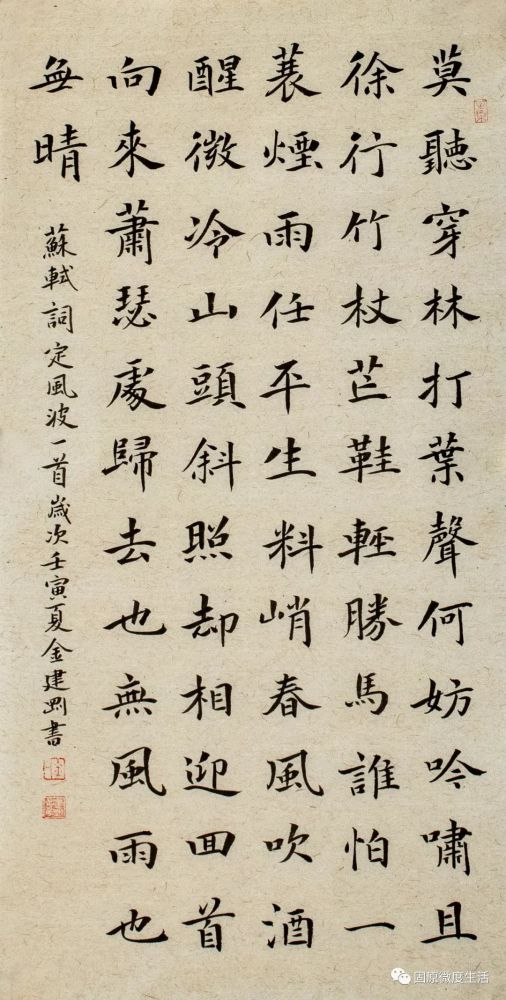 莫聽穿林打葉聲何妨吟嘯且
徐行竹杖芒鞋輕勝馬誰怕一
蓑煙雨任平生料峭春風吹酒
醒微冷山頭斜照却相迎囬首
向來蕭瑟處歸去也無風雨也
無晴
蘇軾詞定風波一首歲次壬寅夏金建剛書
固原微度生活